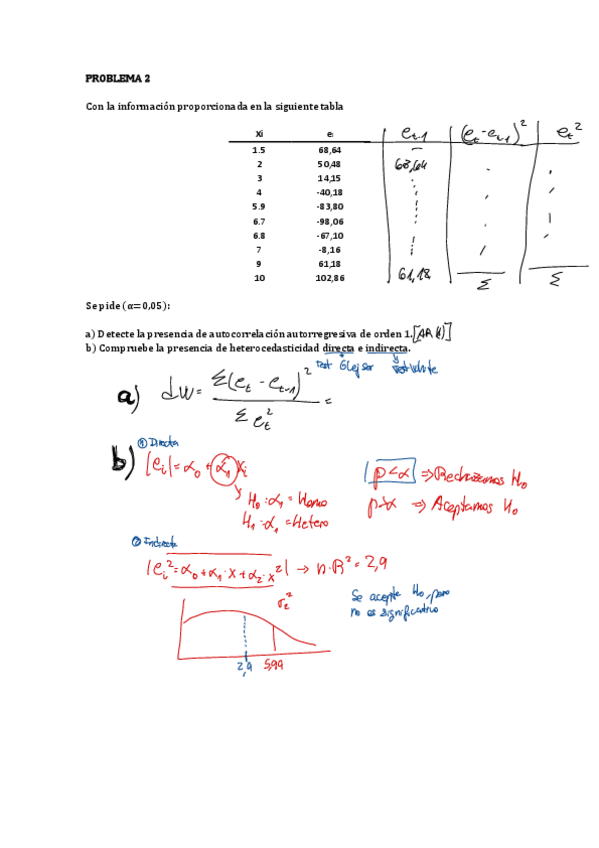 PROBLEMA 2
Con la información proporcionada en la siguiente tabla
Xi ei et-1 (et-et-1)² et²
1.5 68,64 —
2 50,48 68,64
3 14,15
4 -40,18
5.9 -83,80
6.7 -98,06
6.8 -67,10
7 -8,16
9 61,18
10 102,86 61,18 Σ Σ
Se pide (α=0,05):
a) Detecte la presencia de autocorrelación autorregresiva de orden 1. [AR(1)]
b) Compruebe la presencia de heterocedasticidad directa e indirecta.
Test Glejser Test White
a) dw = Σ(et - et-1)² / Σ et² =
① Directa
b) |ei| = α0 + α1 Xi
H0: α1 = Homo
H1: α1 = Hetero
p<α ⇒ Rechazamos H0
p>α ⇒ Aceptamos H0
② Indirecta
|ei² = α0 + α1·X + α2·X²| → n·R² = 2,9
Se acepta H0, pero
no es significativo
2,9 5,99